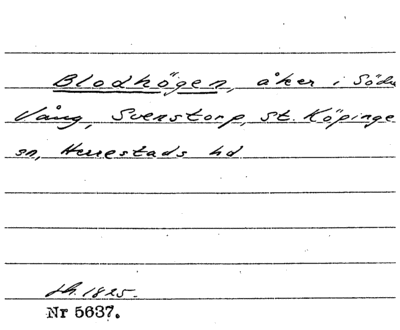 Blodhögen, åker i Södra
Vång, Svenstorp, St. Köpinge
sn, Herrestads hd
sk. 1825.
Nr 5637.